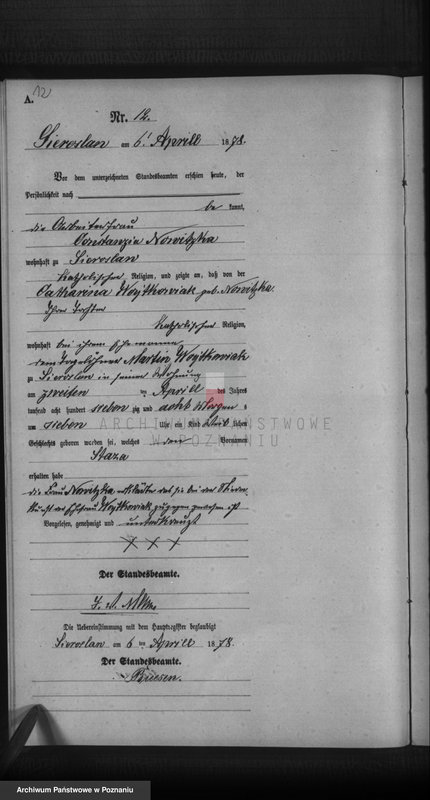 A. 12
Nr. 12.
Sieroslaw am 6t Aprill 1878.
Vor dem unterzeichneten Standesbeamten erschien heute, der
Persönlichkeit nach
be kannt,
die Arbeiterfrau
Constanzia Nowitzka
wohnhaft zu Sieroslaw
katholischer Religion, und zeigte an, daß von der
Catharina Woytkowiak geb. Nowitzka
Ihre Tochter
katholischer Religion,
wohnhaft bei ihrem Ehemanne
dem Tagelöhner Martin Woytkowiak
zu Sieroslaw in seiner Wohnung
am zweiten ten Aprill des Jahres
tausend acht hundert sieben zig und acht Morgens
um sieben Uhr ein Kind weib lichen
Geschlechts geboren worden sei, welches den Vornamen
Staza
erhalten habe
die Frau Nowitzka das sie bei der
Woytkowiak zugegen gewesen ist
Vorgelesen, genehmigt und unterkreuzt
XXX
Der Standesbeamte.
Die Uebereinstimmung mit dem Hauptregister beglaubigt
Sieroslaw am 6 ten Aprill 1878.
Der Standesbeamte.
ARCHIWUM PAŃSTWOWE
W POZNANIU
Archiwum Państwowe w Poznaniu